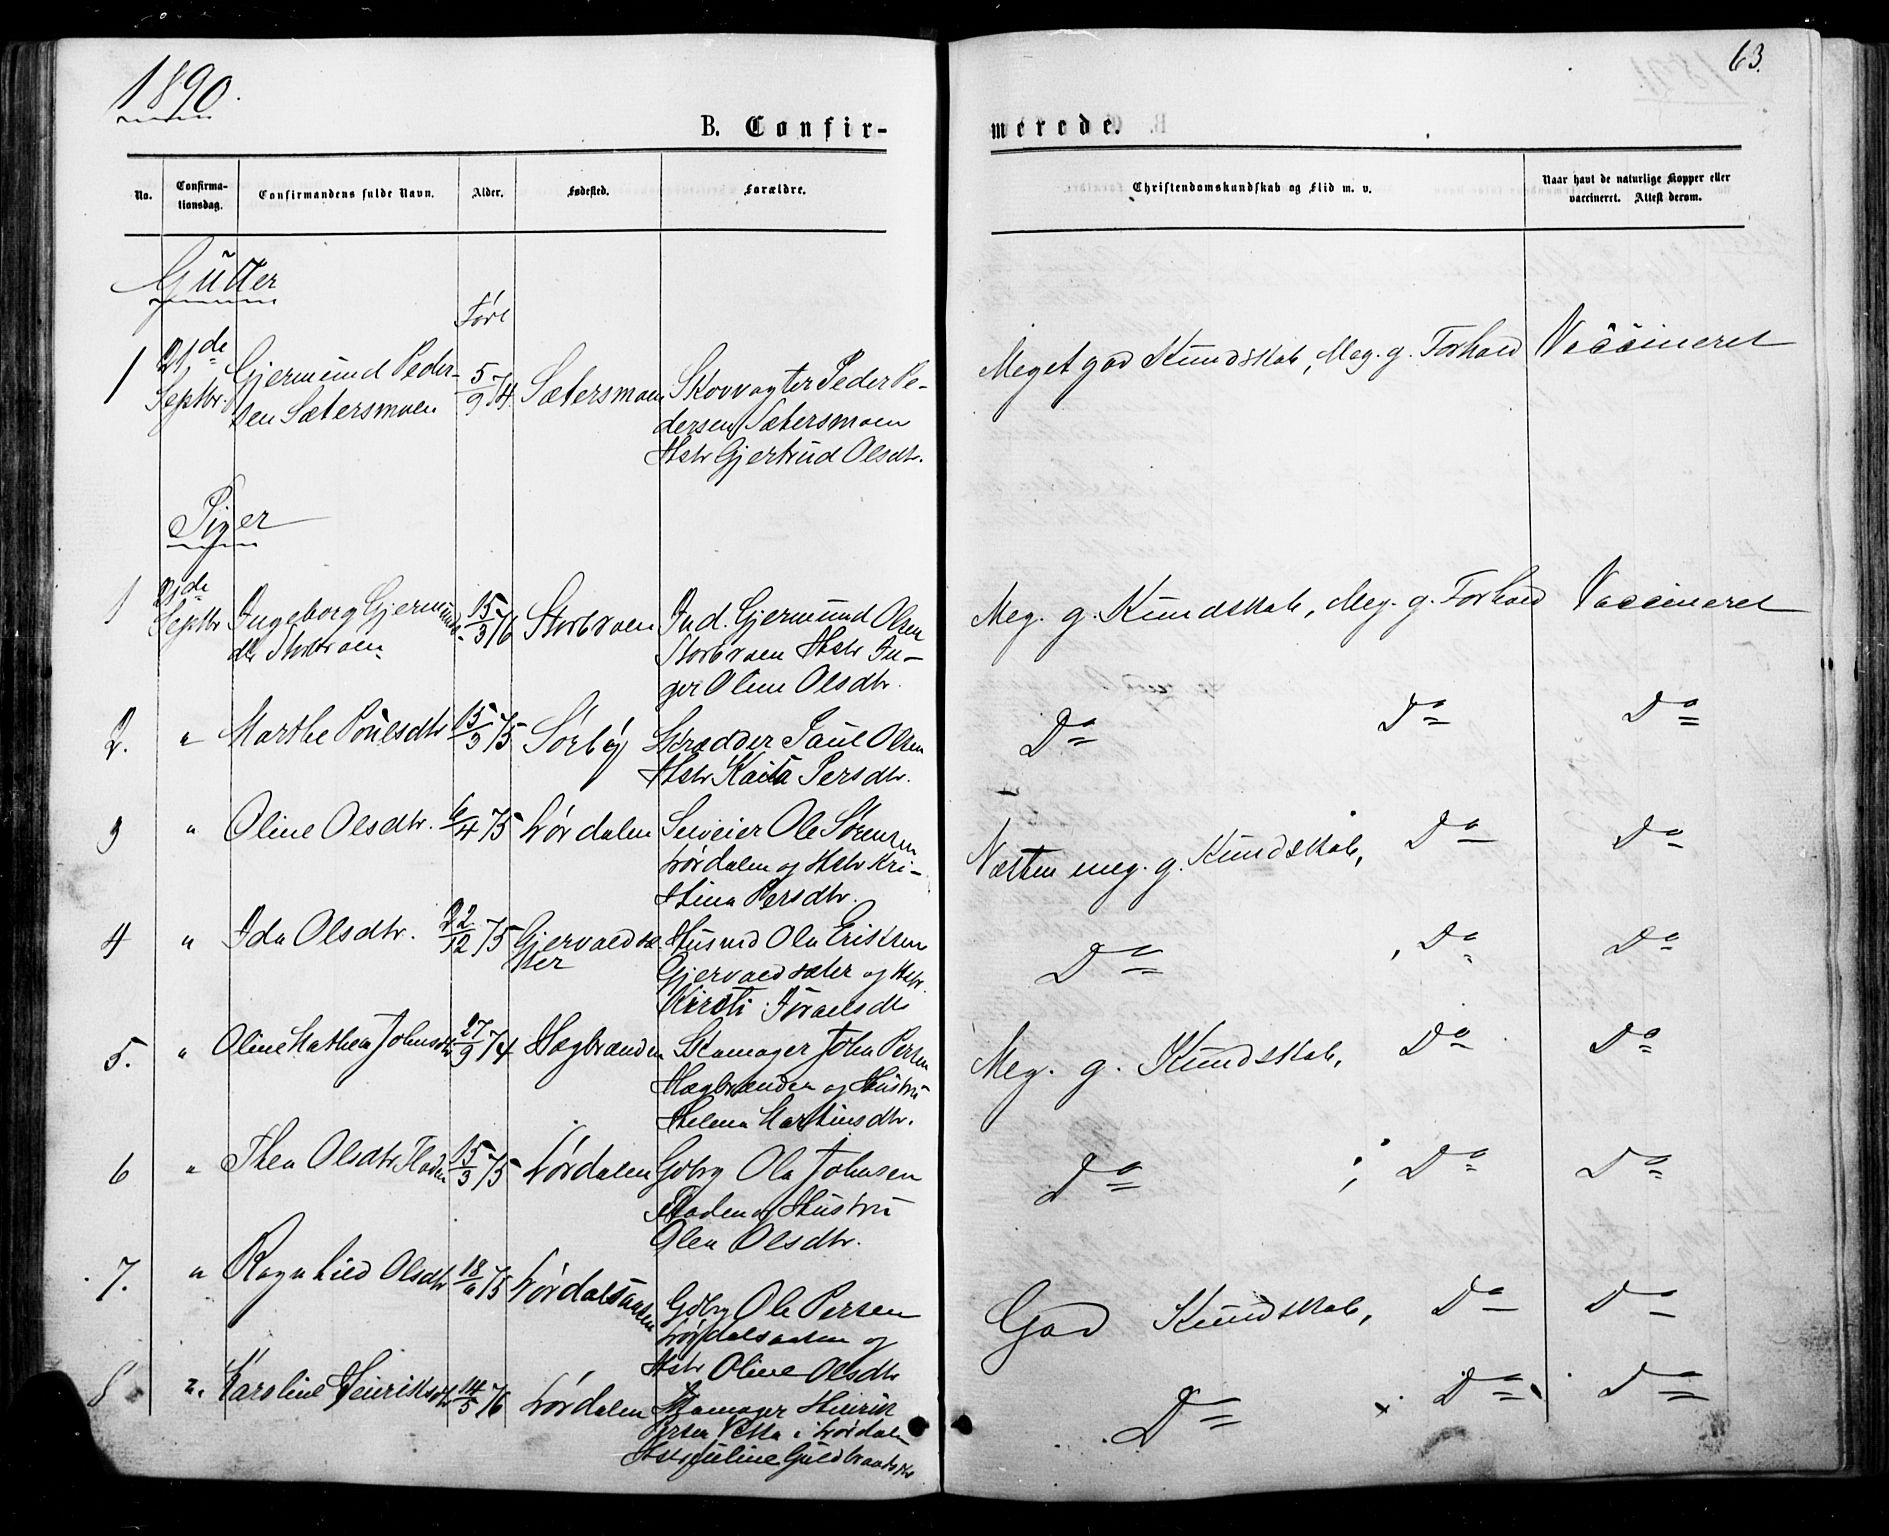 1890.
63.
B. Confir-
merede.
No.
Confirma-
tionsdag.
Confirmandens fulde Navn.
Alder.
Fødested.
Forældre.
Christendomskundskab og Flid m. v.
Naar havt de naturlige Kopper eller
vaccineret. Attest derom.
Gutter
1
21de
Septbr.
Gjermund Peder-
sen Sætersmoen
5/9 74
Sætersmoen
Skovvogter Peder Pe-
dersen Sætersmoen
Hstr Gjertrud Olsdtr.
Meget god Kundskab, Meg. g. Forhold
Vaccineret
Piger
1
21de
Septbr
Ingeborg Gjermunds-
dtr Storbroen
15/3 76
Storbroen
Ind. Gjermund Olsen
Storbroen Hstr In-
ger Oline Olsdtr.
Meg. g. Kundskab, Meg. g. Forhold
Vaccineret
2.
"
Marthe Poulsdtr
15/3 75
Sørby
Skrædder Paul Olsen
Hstr Kari Persdtr.
Do
Do
Do
3
"
Oline Olsdtr.
6/4 75
Lørdalen
Ole Sørensen
Lørdalen og Hstr Kri-
stina Persdtr.
Næsten meg. g. Kundskab,
Do
Do
4
"
Ida Olsdtr.
22/12 75
Gjervoldsæ-
ter
Husmd Ole Eriksen
Gjervoldsæter og Hstr.
Kirsti Israelsdtr
Do
, Do
Do
5.
"
Oline Mathea Johnsdtr
27/9 74
Hagbrænden
Skomager John Persen
Hagbrænden og Hustru
Helena Martinsdtr.
Meg. g. Kundskab,
Do
Do
6
"
Thea Olsdtr Floden
15/3 75
Lørdalen
Gdbrg Ole Johnsen
Floden og Hustru
Olea Olsdtr.
Do
; Do
Do
7.
"
Ragnhild Olsdtr
18/6 75
Lørdalsaasen
Gdbrg Ole Persen
Lørdalsaasen og
Hstr Oline Olsdtr
God Kundskab,
Do
Do
8
".
Karoline Henriksdtr
14/5 76
Lørdalen
Skomager Henrik
Persen i Lørdalen
Hstr Juline Guldbrandsdtr
Do
Do
Do